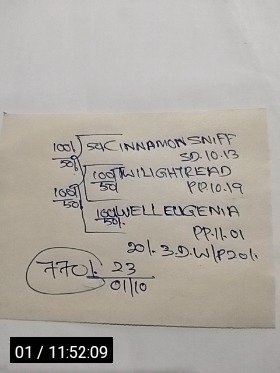 100/ 50/ CINNAMON SNIFF
50/ SD.10.13
100/ TWILIGHTREAD
100/ 50/ PP.10.19
50/
100/ WELLEUGENIA
50/. PP.11.01
20/. 3.D.W/P20/.
770/. 23
01/10
01 / 11:52:09